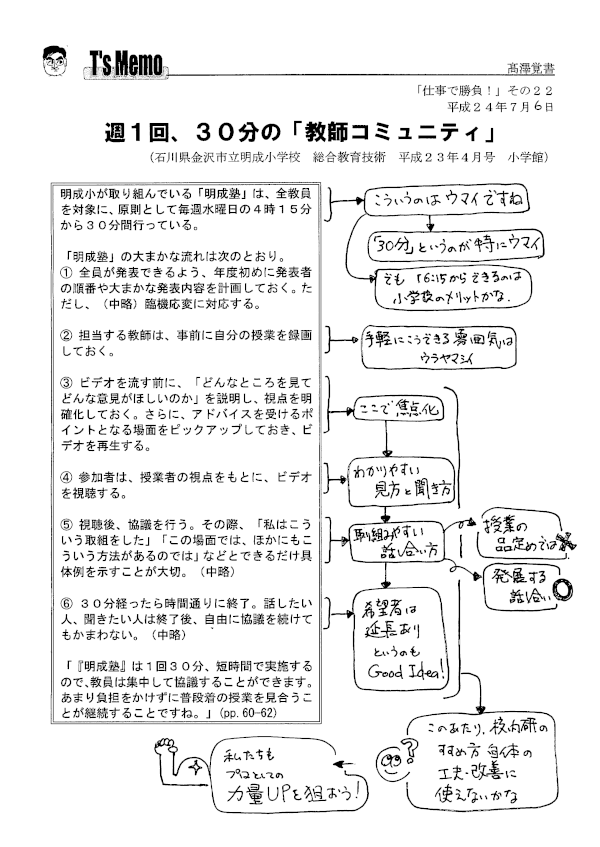 T's Memo
髙澤覚書
「仕事で勝負！」その２２
平成２４年７月６日
週１回、３０分の「教師コミュニティ」
（石川県金沢市立明成小学校　総合教育技術　平成２３年４月号　小学館）
明成小が取り組んでいる「明成塾」は、全教員
を対象に、原則として毎週水曜日の４時１５分
から３０分間行っている。
「明成塾」の大まかな流れは次のとおり。
① 全員が発表できるよう、年度初めに発表者
の順番や大まかな発表内容を計画しておく。た
だし、（中略）臨機応変に対応する。
② 担当する教師は、事前に自分の授業を録画
しておく。
③ ビデオを流す前に、「どんなところを見て
どんな意見がほしいのか」を説明し、視点を明
確化しておく。さらに、アドバイスを受けるポ
イントとなる場面をピックアップしておき、ビ
デオを再生する。
④ 参加者は、授業者の視点をもとに、ビデオ
を視聴する。
⑤ 視聴後、協議を行う。その際、「私はこうい
う取組をした」「この場面では、ほかにもこ
ういう方法があるのでは」などとできるだけ具
体例を示すことが大切。（中略）
⑥ ３０分経ったら時間通りに終了。話したい
人、聞きたい人は終了後、自由に協議を続けて
もかまわない。（中略）
「『明成塾』は１回３０分、短時間で実施する
ので、教員は集中して協議することができます。
あまり負担をかけずに普段着の授業を見合うこ
とが継続することですね。」(pp.60-62)
こういうのはウマイですね
「30分」というのが特にウマイ
でも 16:15からできるのは
小学校のメリットかな.
手軽にこうできる雰囲気は
ウラヤマシイ
ここで焦点化
わかりやすい
見方と聞き方
取組みやすい
話し合い方
授業の
品定めでは×
発展する
話し合い○
希望者は
延長あり
というのも
Good Idea!
このあたり、校内研の
すすめ方自体の
工夫・改善に
使えないかな
?
私たちも
プロとしての
力量UPを狙おう!